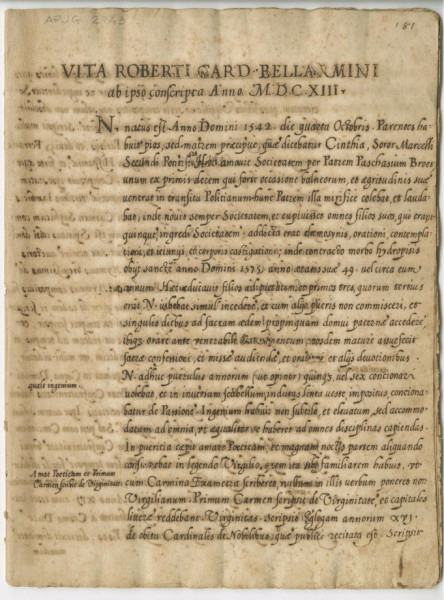 APUG 2743
181
VITA ROBERTI CARD. BELLARMINI
ab ipso conscripta Anno M.DCXIII.
N. natus est Anno Domini 1542. die quarta Octobris. Parentes ha-
buit pios, sed matrem præcipue, quæ dicebatur Cinthia, Soror Marcelli
Secundi Pontif. Hæc amavit Societatem per Patrem Paschasium Broet
unum ex primis decem qui forte occasione balneorum, et ægritudinis suæ
venerat in transitu Politianum. hunc Patrem illa mirifice colebat, et lauda-
bat, inde novit semper Societatem, et cupivisset omnes filios suos, qui erant
quinque, ingredi Societatem. addicta erat elemosynis, orationi, contempla-
tioni, et ieiunijs, et corporis castigationi; inde contracto morbo hydropisis
obijt sancte anno Domini 1575. anno ætatis suæ 49. vel circa eum
annum. Hæc educavit filios ad pietatem, et primos tres, quorum tertius
erat N. iubebat simul incedere, et cum alijs pueris non commisceri, et
singulis diebus ad sacram ædem propinquam domui paternæ accedere,
ibique orare ante venerabile Sacramentum. eosdem mature assuefecit
sacræ confessioni, et missæ audiendæ, et orationi et alijs devotionibus.
N. adhuc parvulus annorum (ut opinor) quinque, vel sex concionari
solebat, et in inversum scabellum, indutus lintea veste, impositus, conciona-
batur de Passione. Ingenium habuit non subtile, et elevatum, sed accommo-
datum ad omnia, ut æqualiter se haberet ad omnes disciplinas capiendas.
quale ingenium.
In pueritia cæpit amare Poeticam, et magnam noctis partem aliquando
consumebat in legendo Virgilio, quem ita sibi familiarem habuit, ut
cum Carmina Exametra scriberet, nullum in illis verbum poneret non
Virgilianum. Primum Carmen scripsit de Virginitate, et capitales
litteræ reddebant Virginitas. scripsit Eglogam annorum XVI.
Amat Poeticam et Primum
Carmen scripsit de Virginitate
de obitu Cardinalis de Nobilibus, quæ publice recitata est. Scripsit